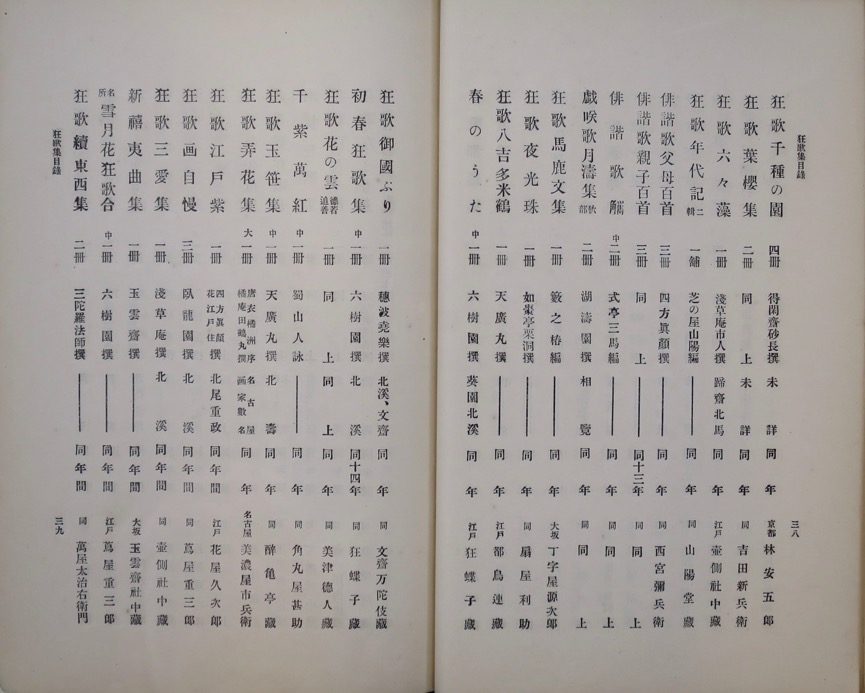 狂歌集目録
狂歌千種の園 四冊 得閑齋砂長撰 未詳 同年 京都 林安五郎
狂歌葉櫻集 二冊 同上 未詳 同年 同 吉田新兵衛
狂歌六々藻 一冊 淺草庵市人撰 蹄齋北馬 同年 江戸 壷側社中藏
狂歌年代記 二輯 一舗 芝の屋山陽編 ―― 同年 同 山陽堂藏
俳諧歌父母百首 三冊 四方眞顏撰 ―― 同年 同 西宮彌兵衛
俳諧歌親子百首 三冊 同上 ―― 同十三年 同 同上
俳諧歌觿 中二冊 式亭三馬編 ―― 同年 同 同上
戯咲歌月濤集 秋部 二冊 湖濤園撰 相覽 同年 同 同上
狂歌馬鹿文集 一冊 籔之椿編 ―― 同年 大坂 丁字屋源次郎
狂歌夜光珠 一冊 如棗亭栗洞編 ―― 同年 同 扇屋利助
狂歌八吉多米鶴 一冊 天廣丸撰 ―― 同年 江戸 都鳥連藏
春のうた 中一冊 六樹園撰 葵園北溪 同年 江戸 狂蝶子藏
三八
狂歌御國ぶり 一冊 穗波堯樂撰 北溪、文齋 同年 同 文齋万陀伎藏
初春狂歌集 中一冊 六樹園撰 北溪 同十四年 同 狂蝶子藏
狂歌花の雲 德若道善 一冊 同上 同上 同年 同 美津德人藏
千紫萬紅 中一冊 蜀山人詠 ―― 同年 同 角丸屋甚助
狂歌玉笹集 中一冊 天廣丸撰 北壽 同年 同 醉亀亭藏
狂歌弄花集 大一冊 唐衣橘洲序 橘庵田鶴丸撰 名古屋畫家數名 同年 名古屋 美濃屋市兵衛
狂歌江戸紫 一冊 四方眞顏 花江戸住撰 北尾重政 同年間 江戸 花屋久次郎
狂歌画自慢 三冊 臥龍園撰 北溪 同年間 同 蔦屋重三郎
狂歌三愛集 一冊 淺草庵撰 北溪 同年間 同 壷側社中藏
新禧夷曲集 一冊 玉雲齋撰 ―― 同年間 大坂 玉雲齋社中藏
名所雪月花狂歌合 中一冊 六樹園撰 ―― 同年間 江戸 蔦屋重三郎
狂歌續東西集 二冊 三陀羅法師撰 ―― 同年間 同 萬屋太治右衛門
狂歌集目録
三九